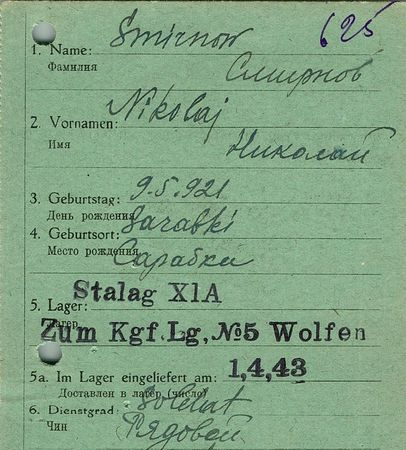 625
1. Name: Smirnow
Фамилия Смирнов
2. Vornamen: Nikolaj
Имя Николай
3. Geburtstag: 9.5.921
День рождения
4. Geburtsort: Sarabki
Место рождения Сарабки
5. Lager: Stalag X1A
Лагерь
Zum Kgf.Lg, №5 Wolfen
5a. Im Lager eingeliefert am: 1,4,43
Доставлен в лагерь (число)
6. Dienstgrad: Soldat
Чин Рядовой